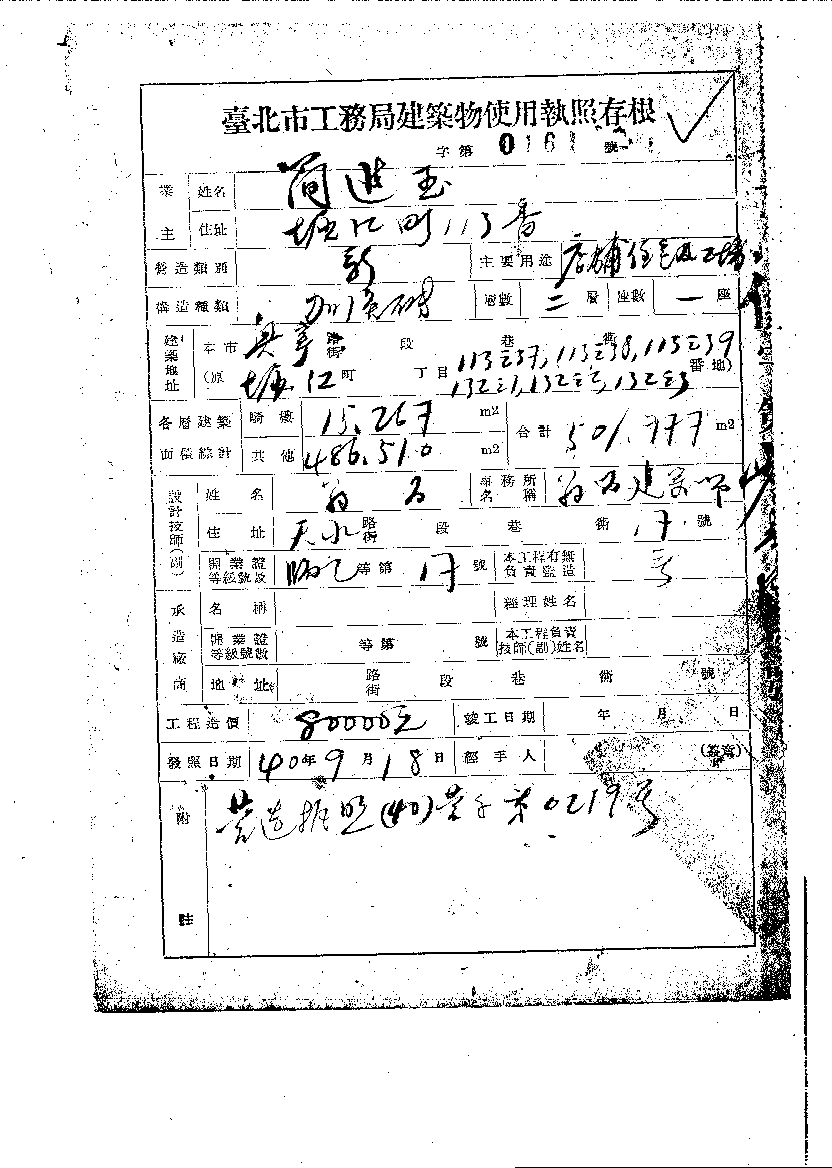 臺北市工務局建築物使用執照存根
字第 0161 號
業主 姓名 簡進玉
住址 堀江町113番
營造類別 新 主要用途 店舖住宅及工場
構造種類 加強磚 層數 二層 座數 一座
建築地址 本市 路街 段 巷 衖
113之37,113之38,113之39
(原 堀江町 丁目 番地)
132之1,132之2,132之3
各層建築面積總計 騎樓 15.267 m2 合計 501.777 m2
其他 486.510 m2
設計技師(副) 姓名 事務所名稱 建築師
住址 天水路街 段 巷 衖 17號
開業證等級號數 等第 17 號 本工程有無負責監造
承造廠商 名稱 經理姓名
開業證等級號數 等第 號 本工程負責技師(副)姓名
地址 路街 段 巷 衖 號
工程造價 80000元 竣工日期 年 月 日
發照日期 40年9月18日 經手人 (簽章)
附註 營造執照(40)營字第0219号